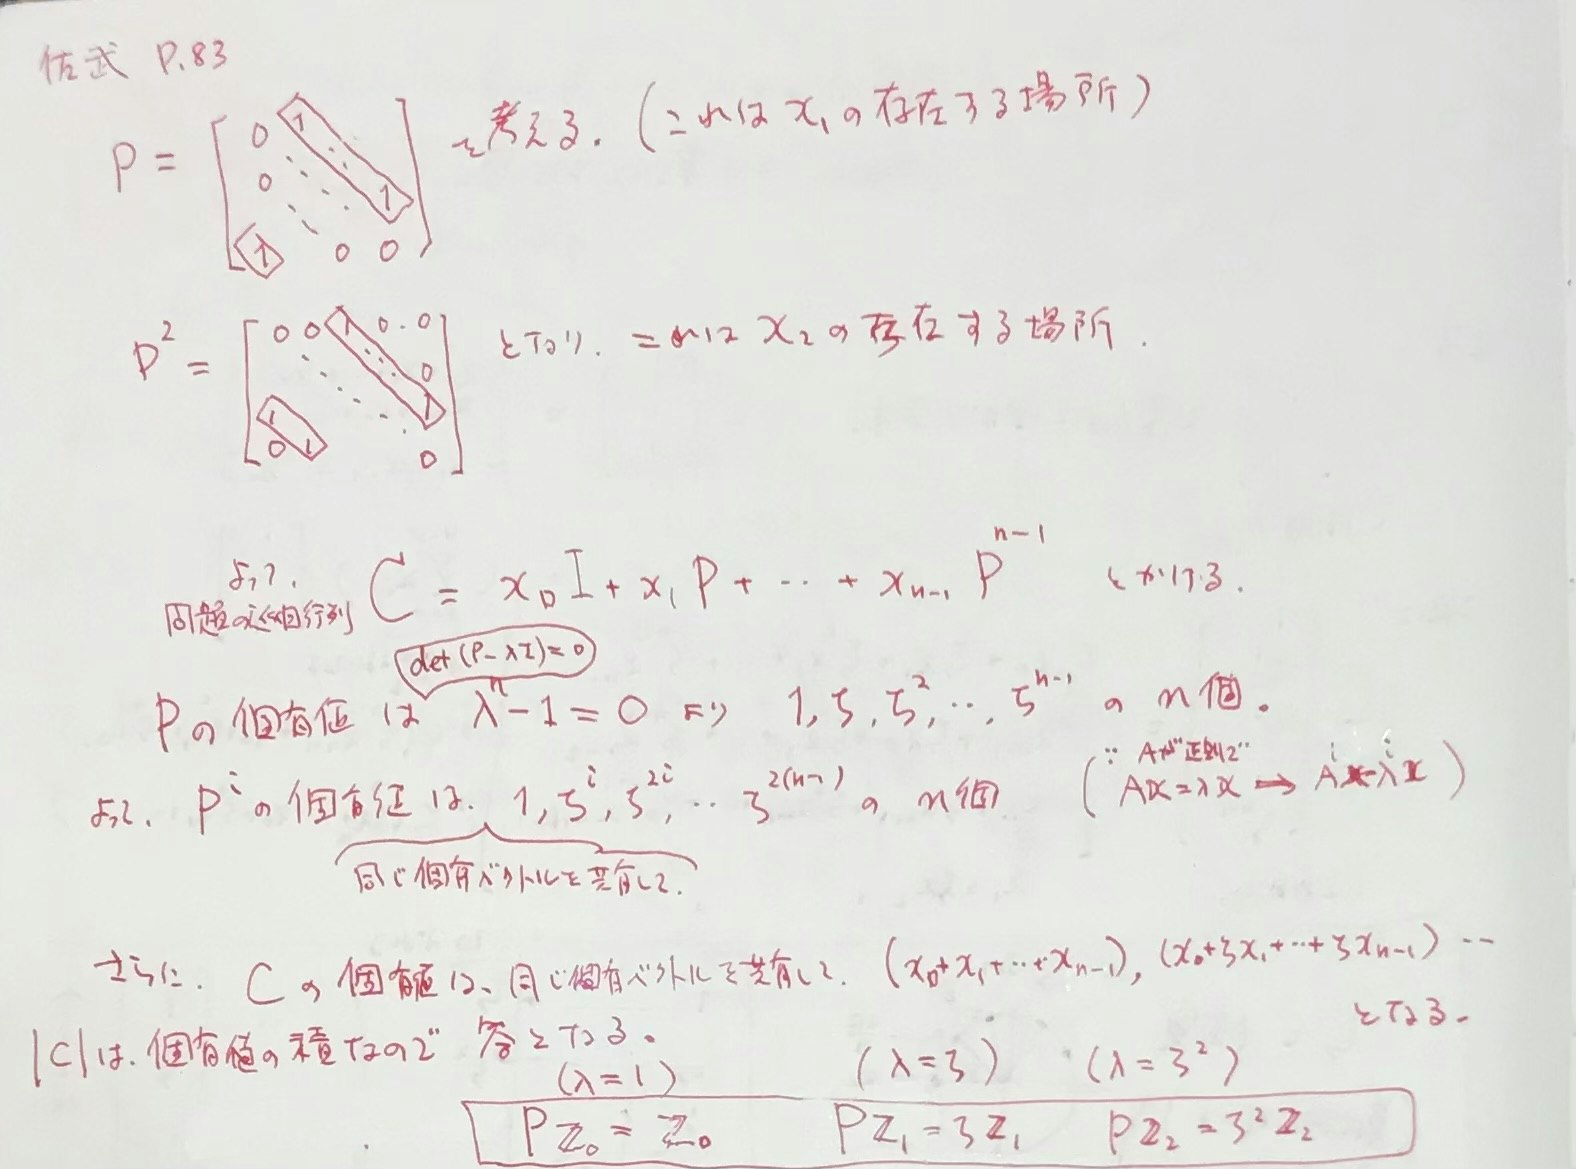 佐武 P.83
P = [ 0 1 0 1 1 0 0 ] を考える. (これは x₁ の存在する場所)
P² = [ 0 0 1 0 . 0 0 1 1 0 1 0 ] となり. これは x₂ の存在する場所.
よって. 問題の巡回行列 C = x₀I + x₁P + ... + xₙ₋₁Pⁿ⁻¹ とかける.
det(P-λI)=0
Pの固有値は λⁿ-1=0 より 1, ζ, ζ², .., ζⁿ⁻¹ の n個。
よって. Pⁱの固有値は. 1, ζⁱ, ζ²ⁱ, .. ζ²⁽ⁿ⁻¹⁾ の n個 (∵ Aが正則で Ax=λx ⟹ Aⁱx=λⁱx)
同じ固有ベクトルを共有して.
さらに. Cの固有値は、同じ固有ベクトルを共有して. (x₀+x₁+...+xₙ₋₁), (x₀+ζx₁+...+ζxₙ₋₁) ...
となる.
|C|は. 固有値の積なので 答となる。
(λ=1) (λ=ζ) (λ=ζ²)
Pz₀ = z₀ Pz₁ = ζz₁ Pz₂ = ζ²z₂